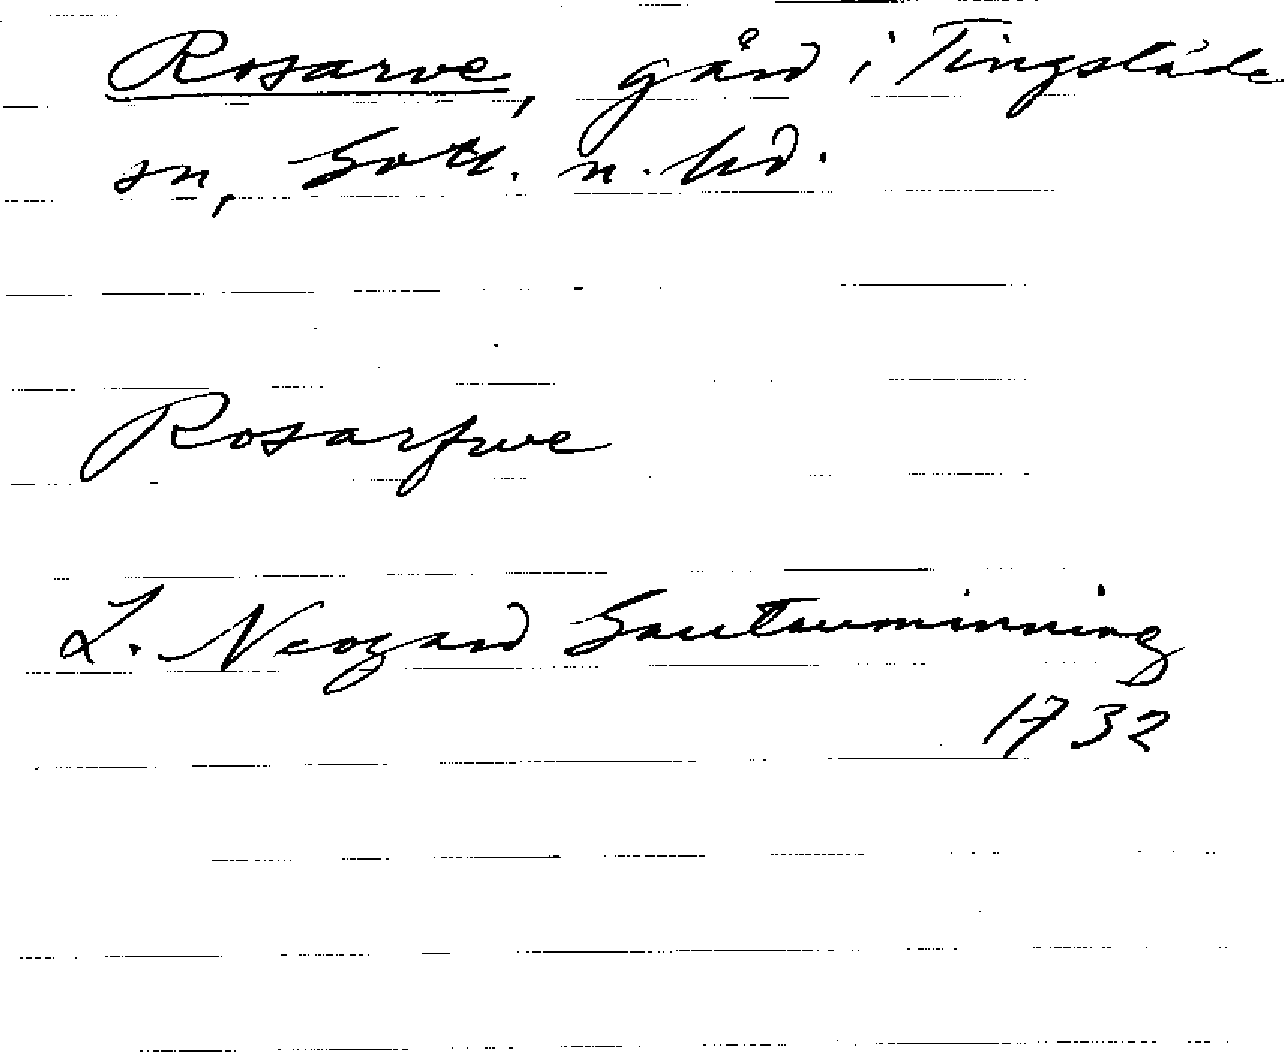 Rosarve, gård i Tingstäde
sn, Gotl. n. hd.
Rosarfwe
L. Neogard Gautauminning
1732